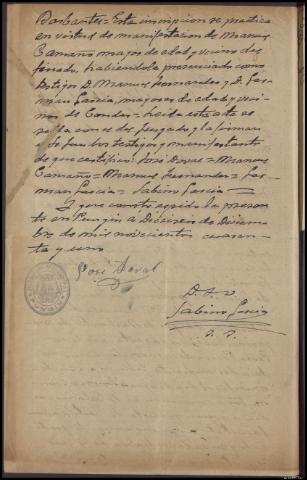 Barbantes = Esta inscripcion se practica
en virtud de manifestacion de Manuel
Camaño mayor de edad y vecino del
finado, habiendola presenciado como
testigos D. Manuel Fernandez y D. Ger-
man Garcia, mayores de edad y veci-
nos de = leida esta acta se
sella con el del Juzgado y la firman
los testigos y manifestante
de que certifico: José = Manuel
Camaño = Manuel Fernandez = Ger-
man Garcia = Sabino Garcia =
Y que conste expido la presen-
te en Punxin a Dieciseis de Diciem-
bre de mil novecientos cuaren-
ta y uno
José
D. S. O.
Sabino Garcia